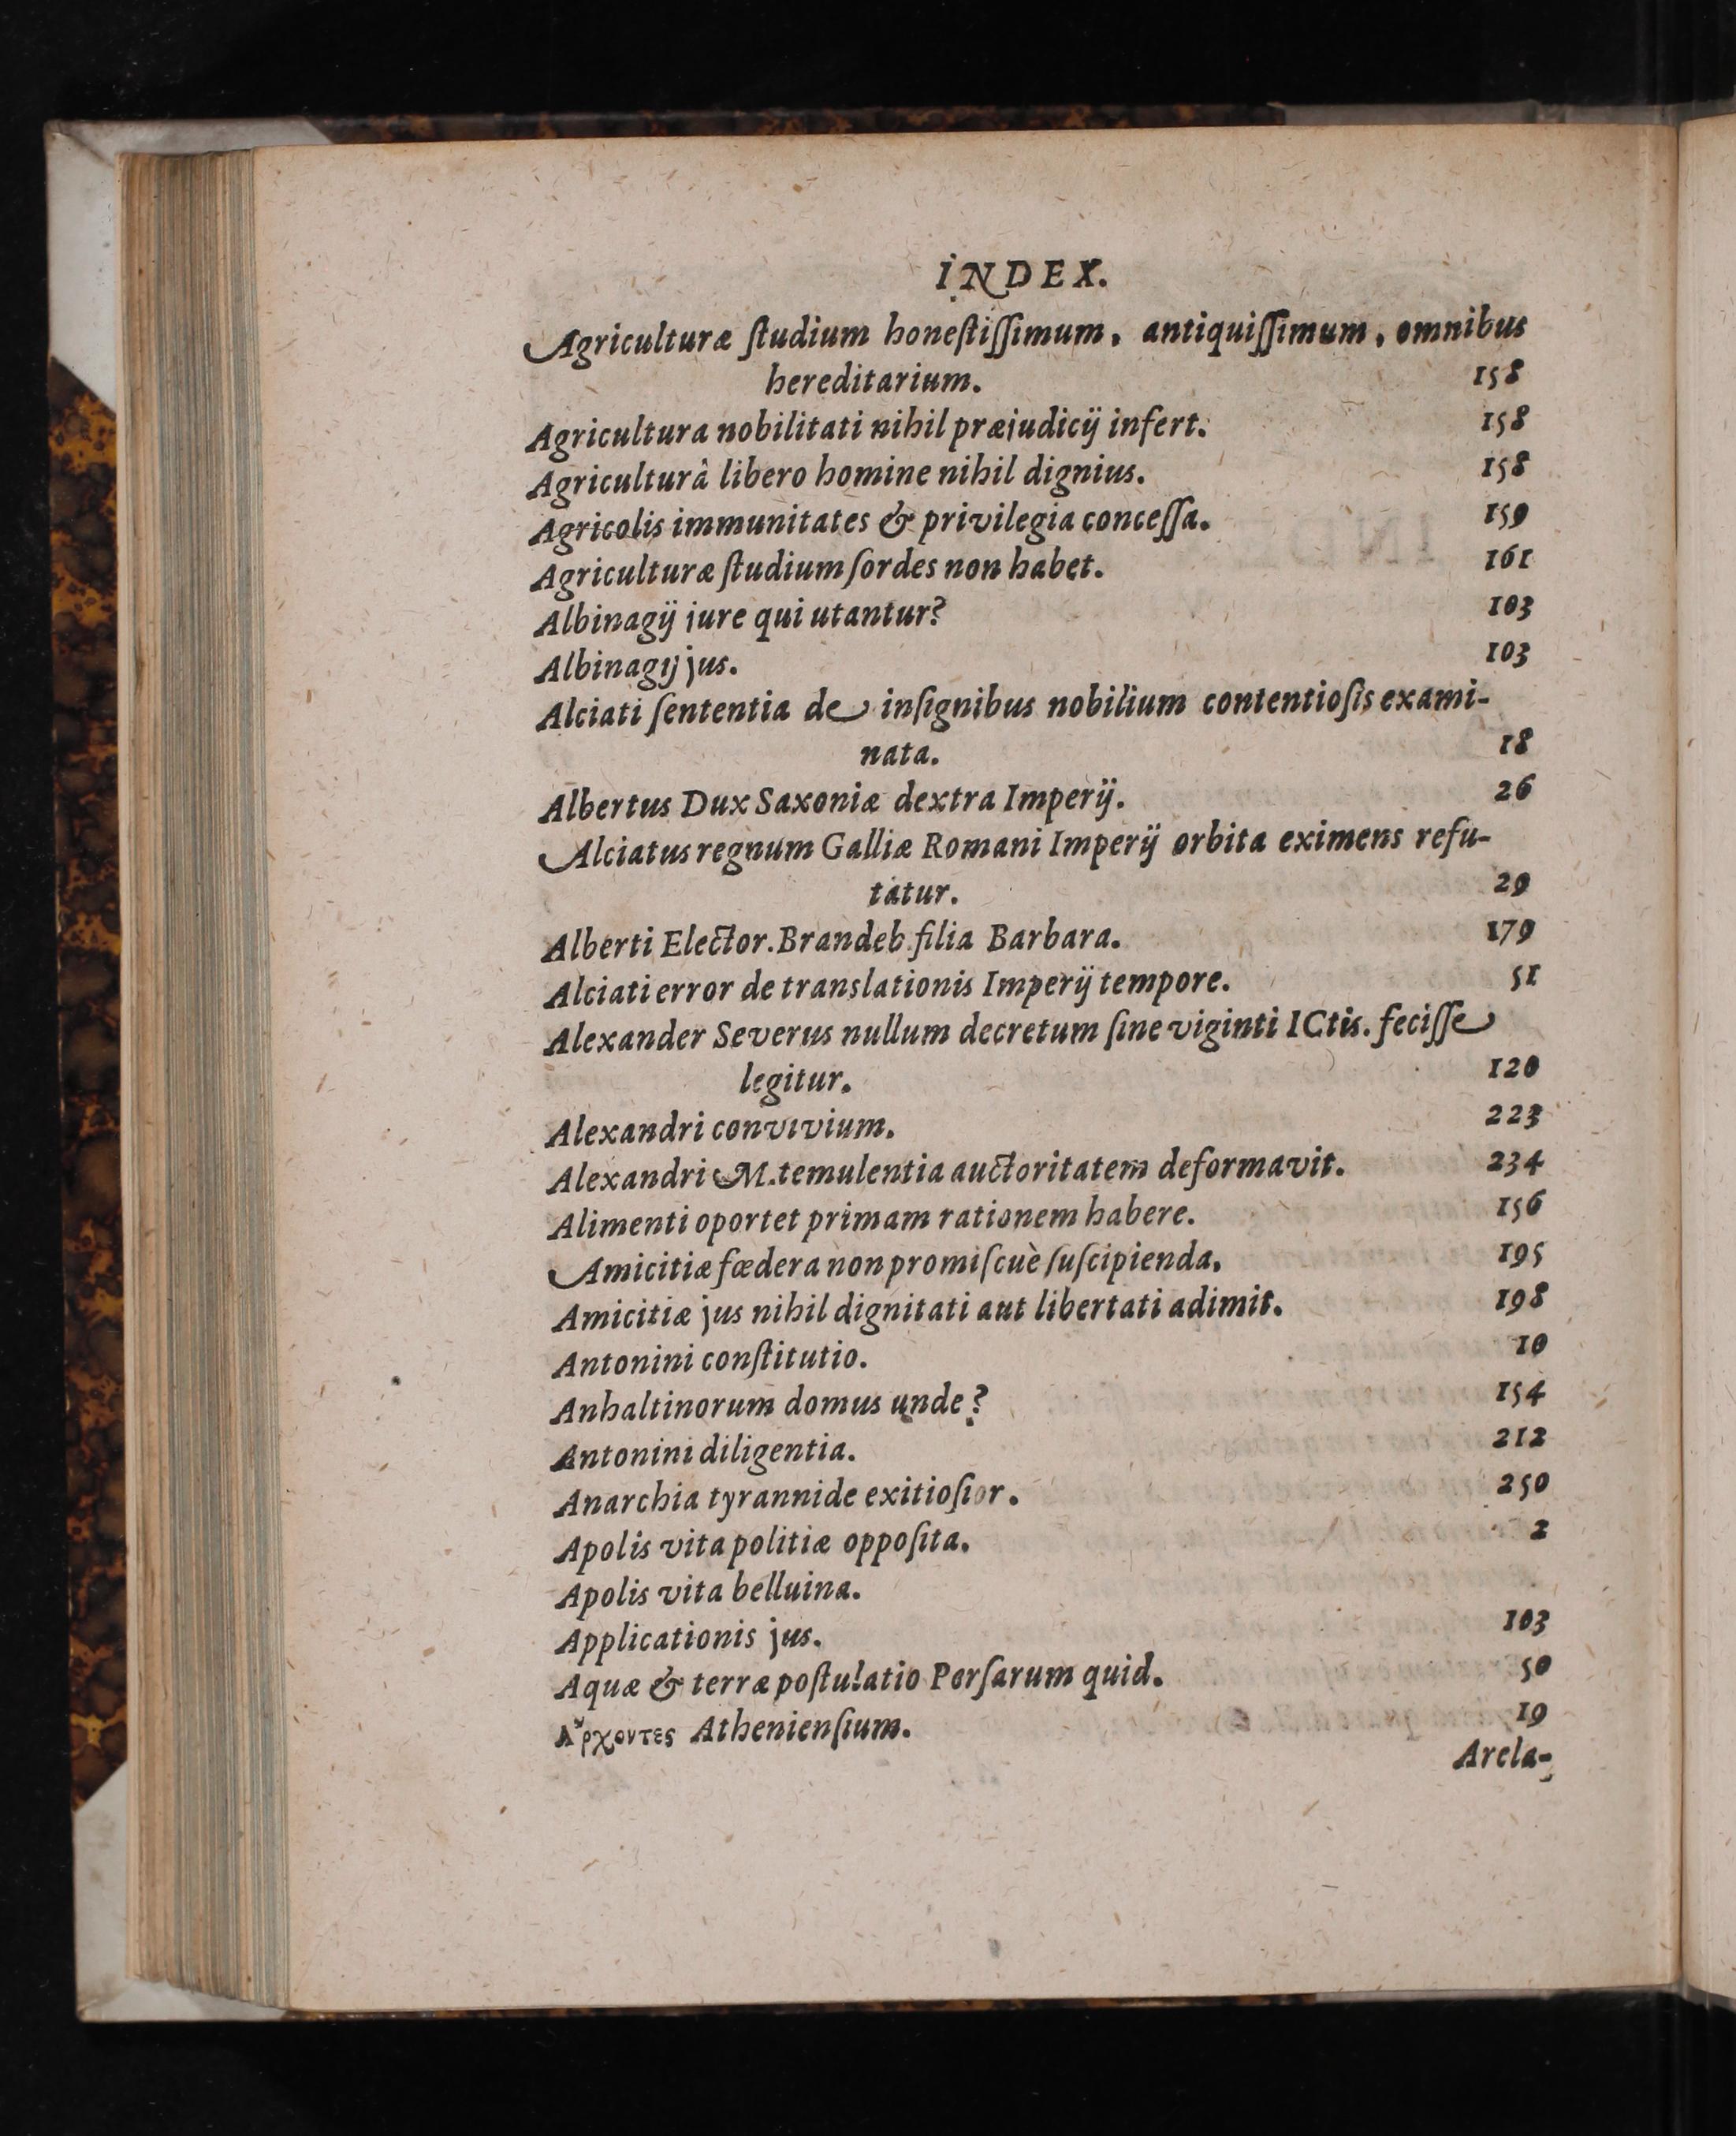 INDEX.
Agriculturæ ſtudium honeſtiſſimum, antiquiſſimum, omnibus
hereditarium. 158
Agricultura nobilitati nihil præjudicij infert. 158
Agriculturâ libero homine nihil dignius. 158
Agricolis immunitates & privilegia conceſſa. 159
Agriculturæ ſtudium ſordes non habet. 161
Albinagij jure qui utantur? 103
Albinagij jus. 103
Alciati ſententia de inſignibus nobilium contentioſis exami-
nata. 18
Albertus Dux Saxoniæ dextra Imperij. 26
Alciatus regnum Galliæ Romani Imperij orbita eximens refu-
tatur. 29
Alberti Elector. Brandeb. filia Barbara. 179
Alciati error de translationis Imperij tempore. 51
Alexander Severus nullum decretum ſine viginti ICtis. feciſſe
legitur. 120
Alexandri convivium. 223
Alexandri M. temulentia auctoritatem deformavit. 234
Alimenti oportet primam rationem habere. 156
Amicitiæ fœdera non promiſcuè ſuſcipienda. 195
Amicitiæ jus nihil dignitati aut libertati adimit. 198
Antonini conſtitutio. 10
Anhaltinorum domus unde? 154
Antonini diligentia. 212
Anarchia tyrannide exitioſior. 250
Apolis vita politiæ oppoſita. 2
Apolis vita belluina.
Applicationis jus. 103
Aquæ & terræ poſtulatio Perſarum quid. 50
Ἄρχοντες Athenienſium. 19
Arela-